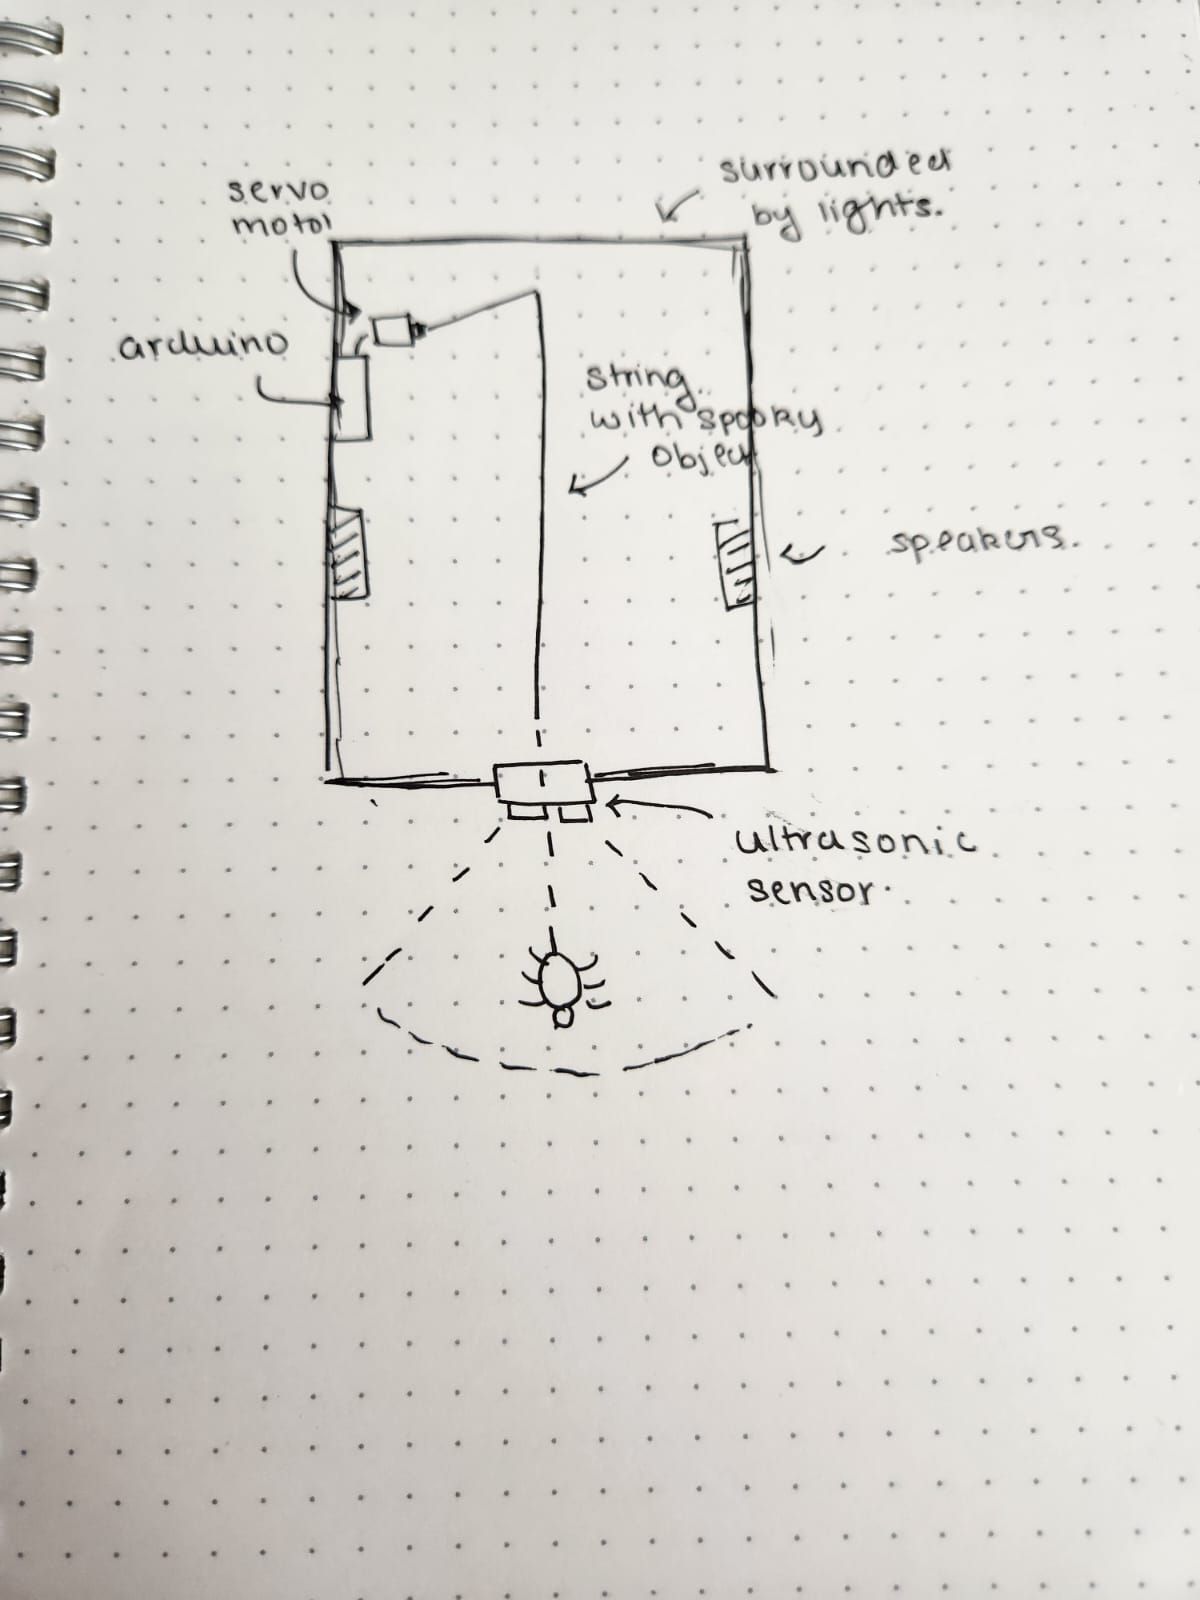 surrounded
by lights.
servo
motor
arduino
string
with spooky
object
speakers.
ultrasonic
sensor.